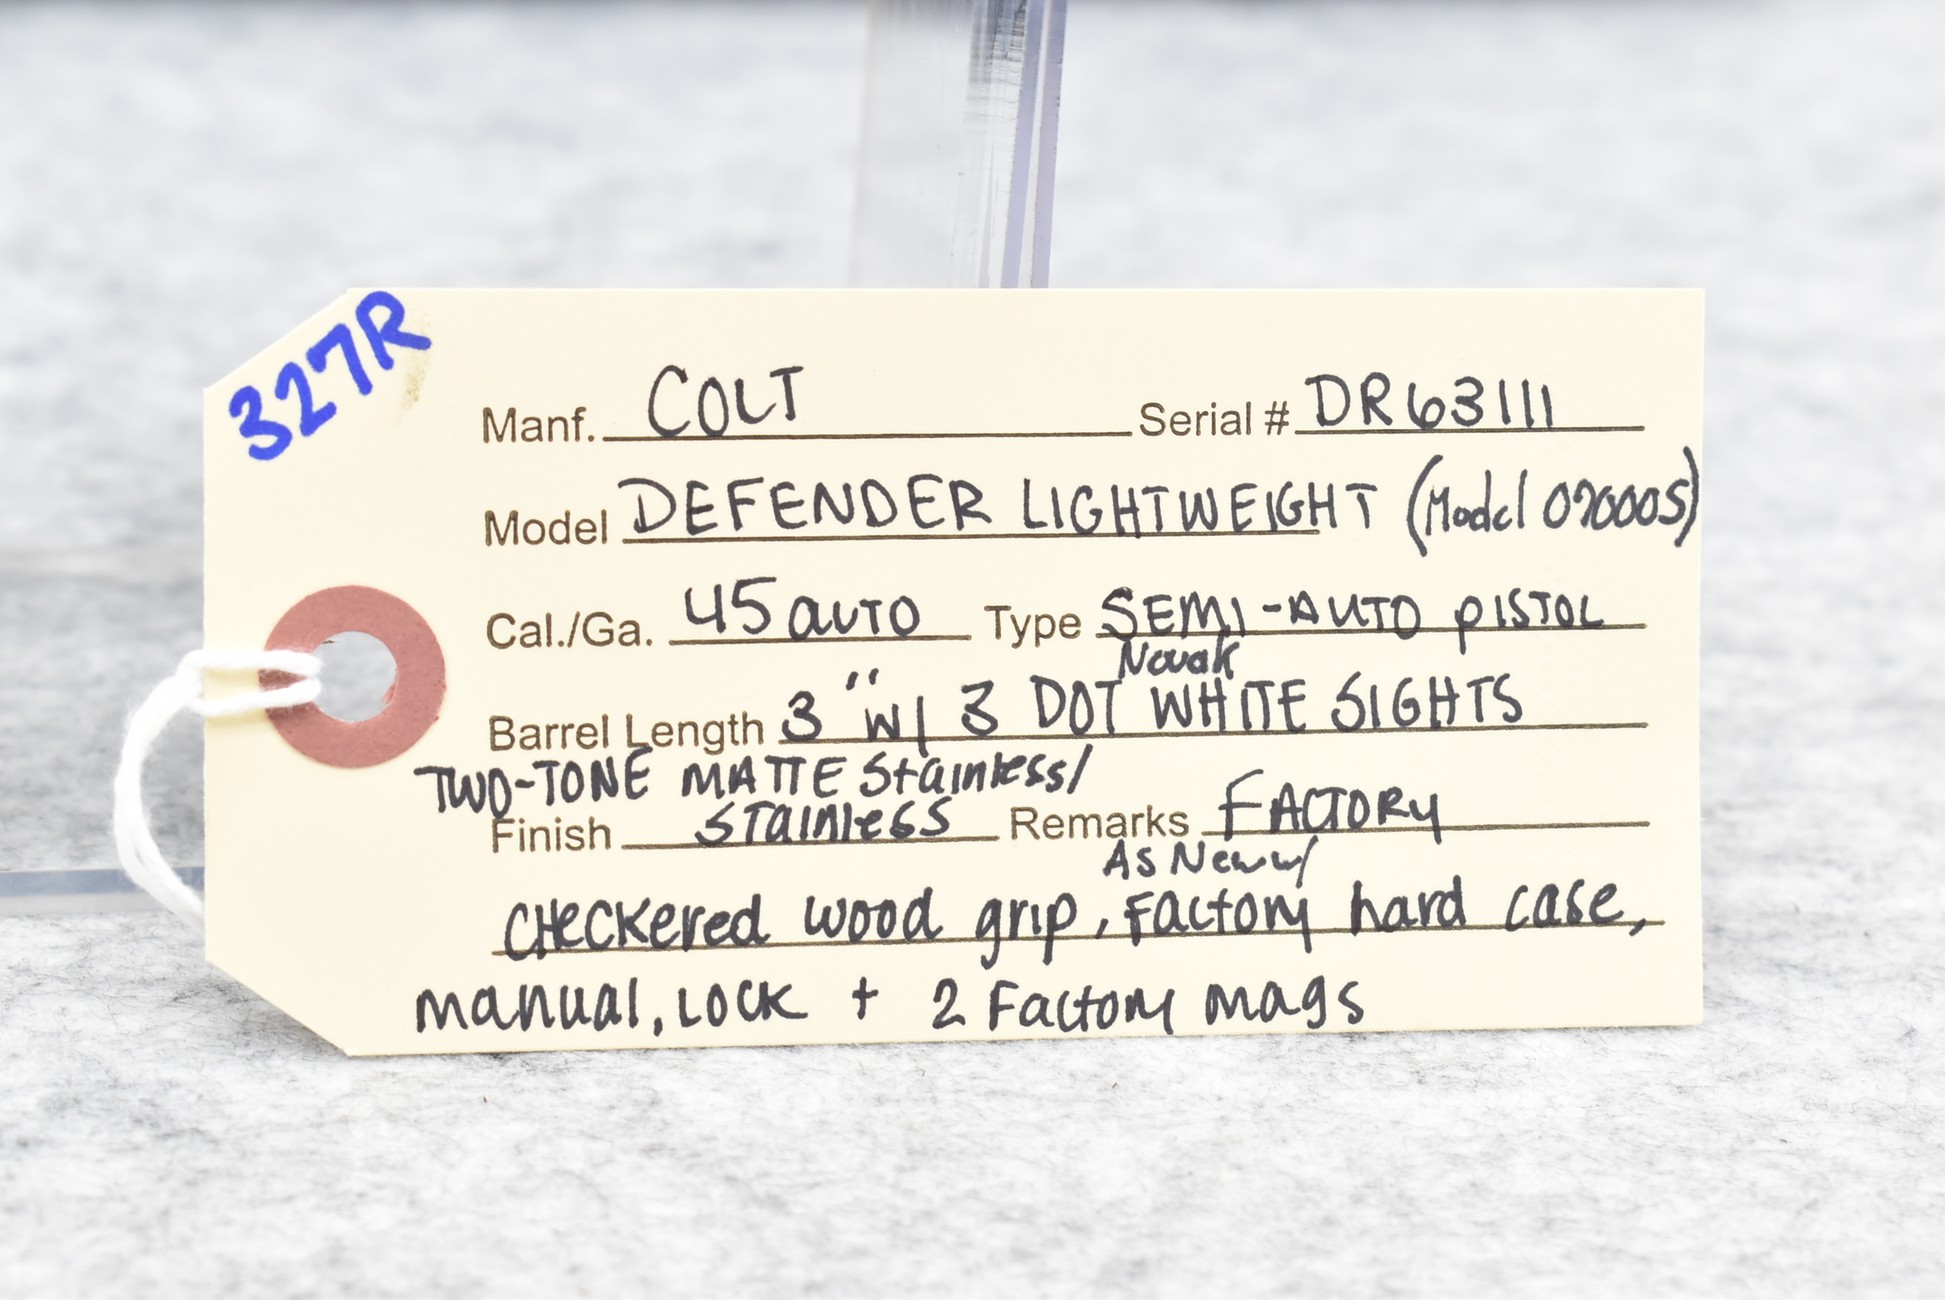 327R
Manf. COLT Serial # DR63111
Model DEFENDER LIGHTWEIGHT (Model 07000S)
Cal./Ga. 45 auto Type SEMI-AUTO PISTOL
Novak
Barrel Length 3" w/ 3 DOT WHITE SIGHTS
TWO-TONE MATTE Stainless/
Finish Stainless Remarks FACTORY
As New w/
CHeckered wood grip, Factory hard case,
manual, Lock + 2 Factory mags